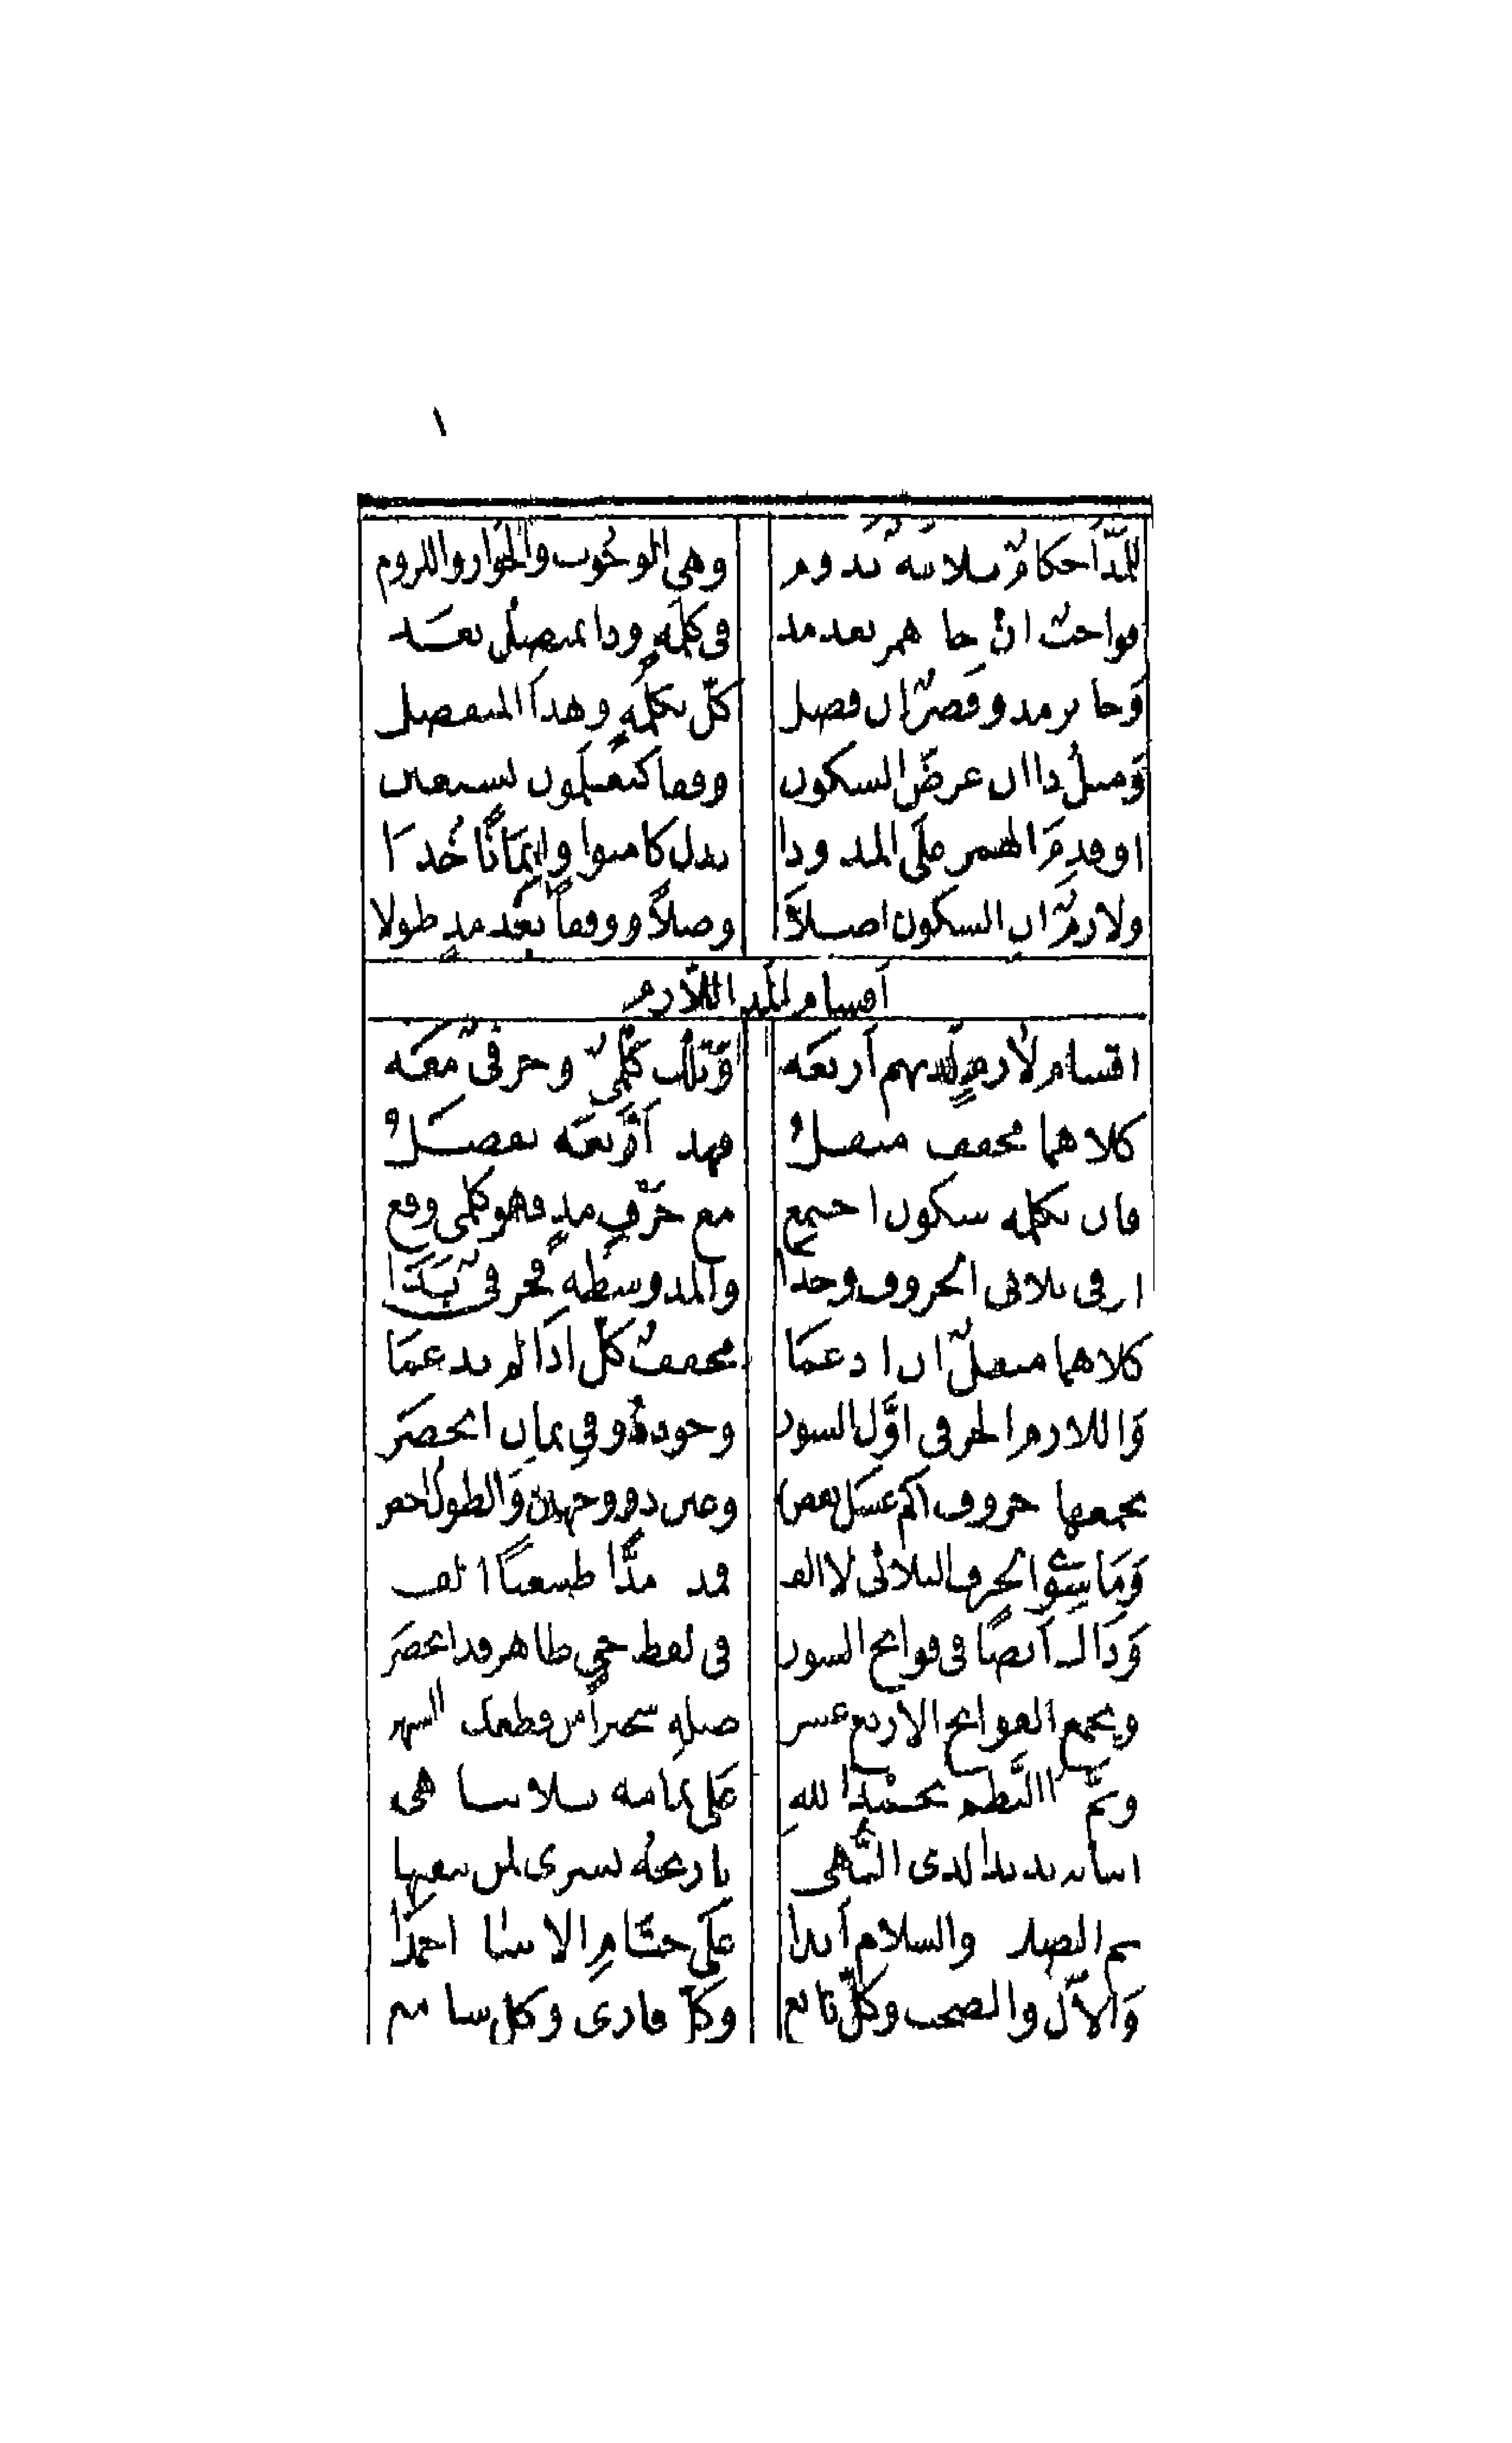 ١
للمد احكام ثلاثة تدوم وهي الوجوب والجواز واللزوم
فواجب ان جا همز بعد مد في كلمة وذا بمتصل يعد
وجائز مد وقصر ان فصل كل بكلمة وهذا المنفصل
ومثل ذا ان عرض السكون وقفا كتعلمون نستعين
او قدم الهمز على المد وذا بدل كامنوا وايمانا خذا
ولازم ان السكون اصلا وصلا ووقفا بعد مد طولا
اقسام المد اللازم
اقسام لازم لديهم اربعه وتلك كلمي وحرفي معه
كلاهما مخفف مثقل فهذه اربعة تفصل
فان بكلمة سكون اجتمع مع حرف مد فهو كلمي وقع
او في ثلاثي الحروف وجدا والمد وسطه فحرفي بدا
كلاهما مثقل ان ادغما مخفف كل اذا لم يدغما
واللازم الحرفي اول السور وجوده وفي ثمان انحصر
يجمعها حروف كم عسل نقص وعين ذو وجهين والطول اخص
وما سوى الحرف الثلاثي لا الف فمده مدا طبيعيا الف
وذاك ايضا في فواتح السور في لفظ حي طاهر قد انحصر
ويجمع الفواتح الاربع عشر صله سحيرا من قطعك اشتهر
وتم ذا النظم بحمد الله على تمامه بلا تناهي
ابياته ند بدا لذي النهى تاريخه بشرى لمن يتقنها
ثم الصلاة والسلام ابدا على ختام الانبيا احمدا
والآل والصحب وكل تابع وكل قاري وكل سامع